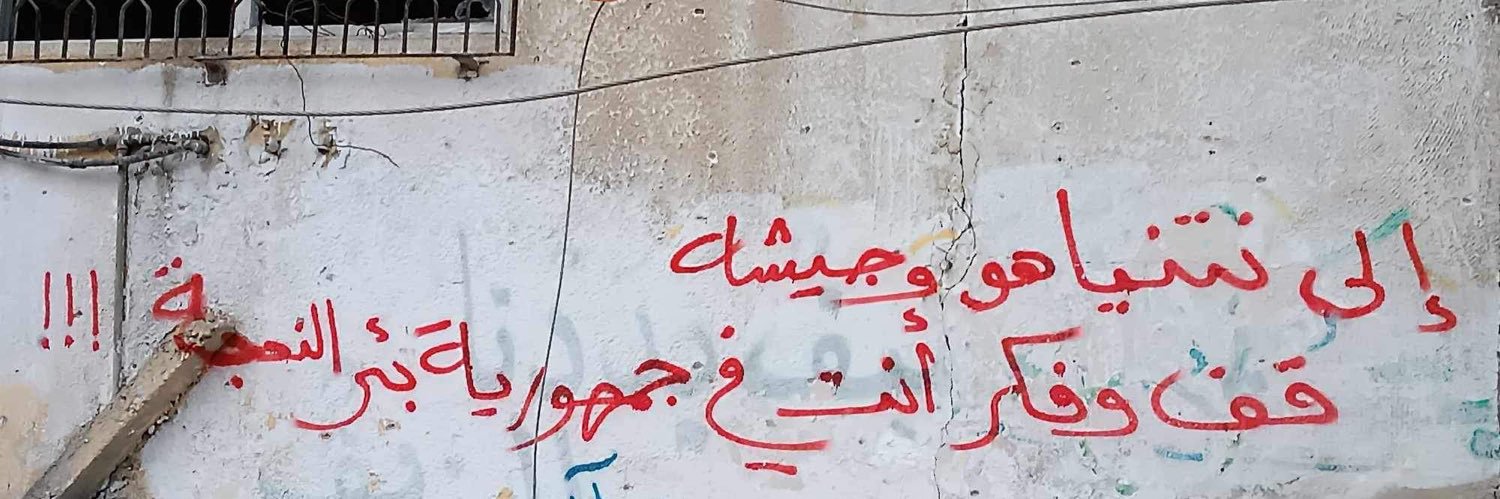 إلى نتنياهو وجيشه
قف وفكر أنت في جمهورية بئر النعجة !!!